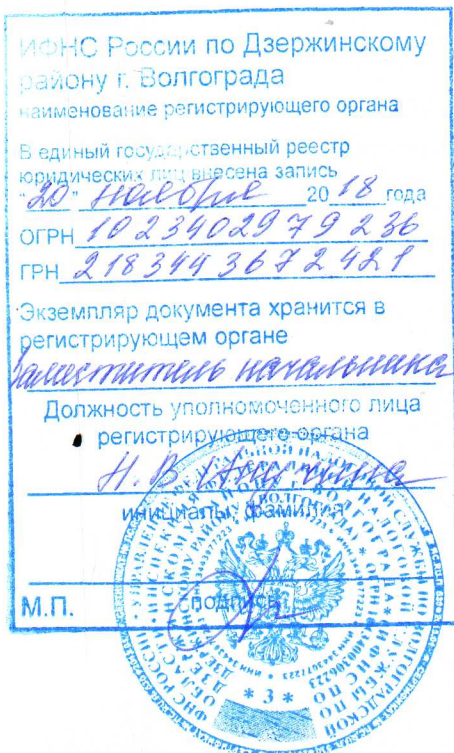 ИФНС России по Дзержинскому
району г. Волгограда
наименование регистрирующего органа
В единый государственный реестр
юридических лиц внесена запись
"20" ноября 2018 года
ОГРН 1023402979236
ГРН 2183443672421
Экземпляр документа хранится в
регистрирующем органе
Заместитель начальника
Должность уполномоченного лица
регистрирующего органа
Н. В.
инициалы, фамилия
подпись
М.П.
* 3 *